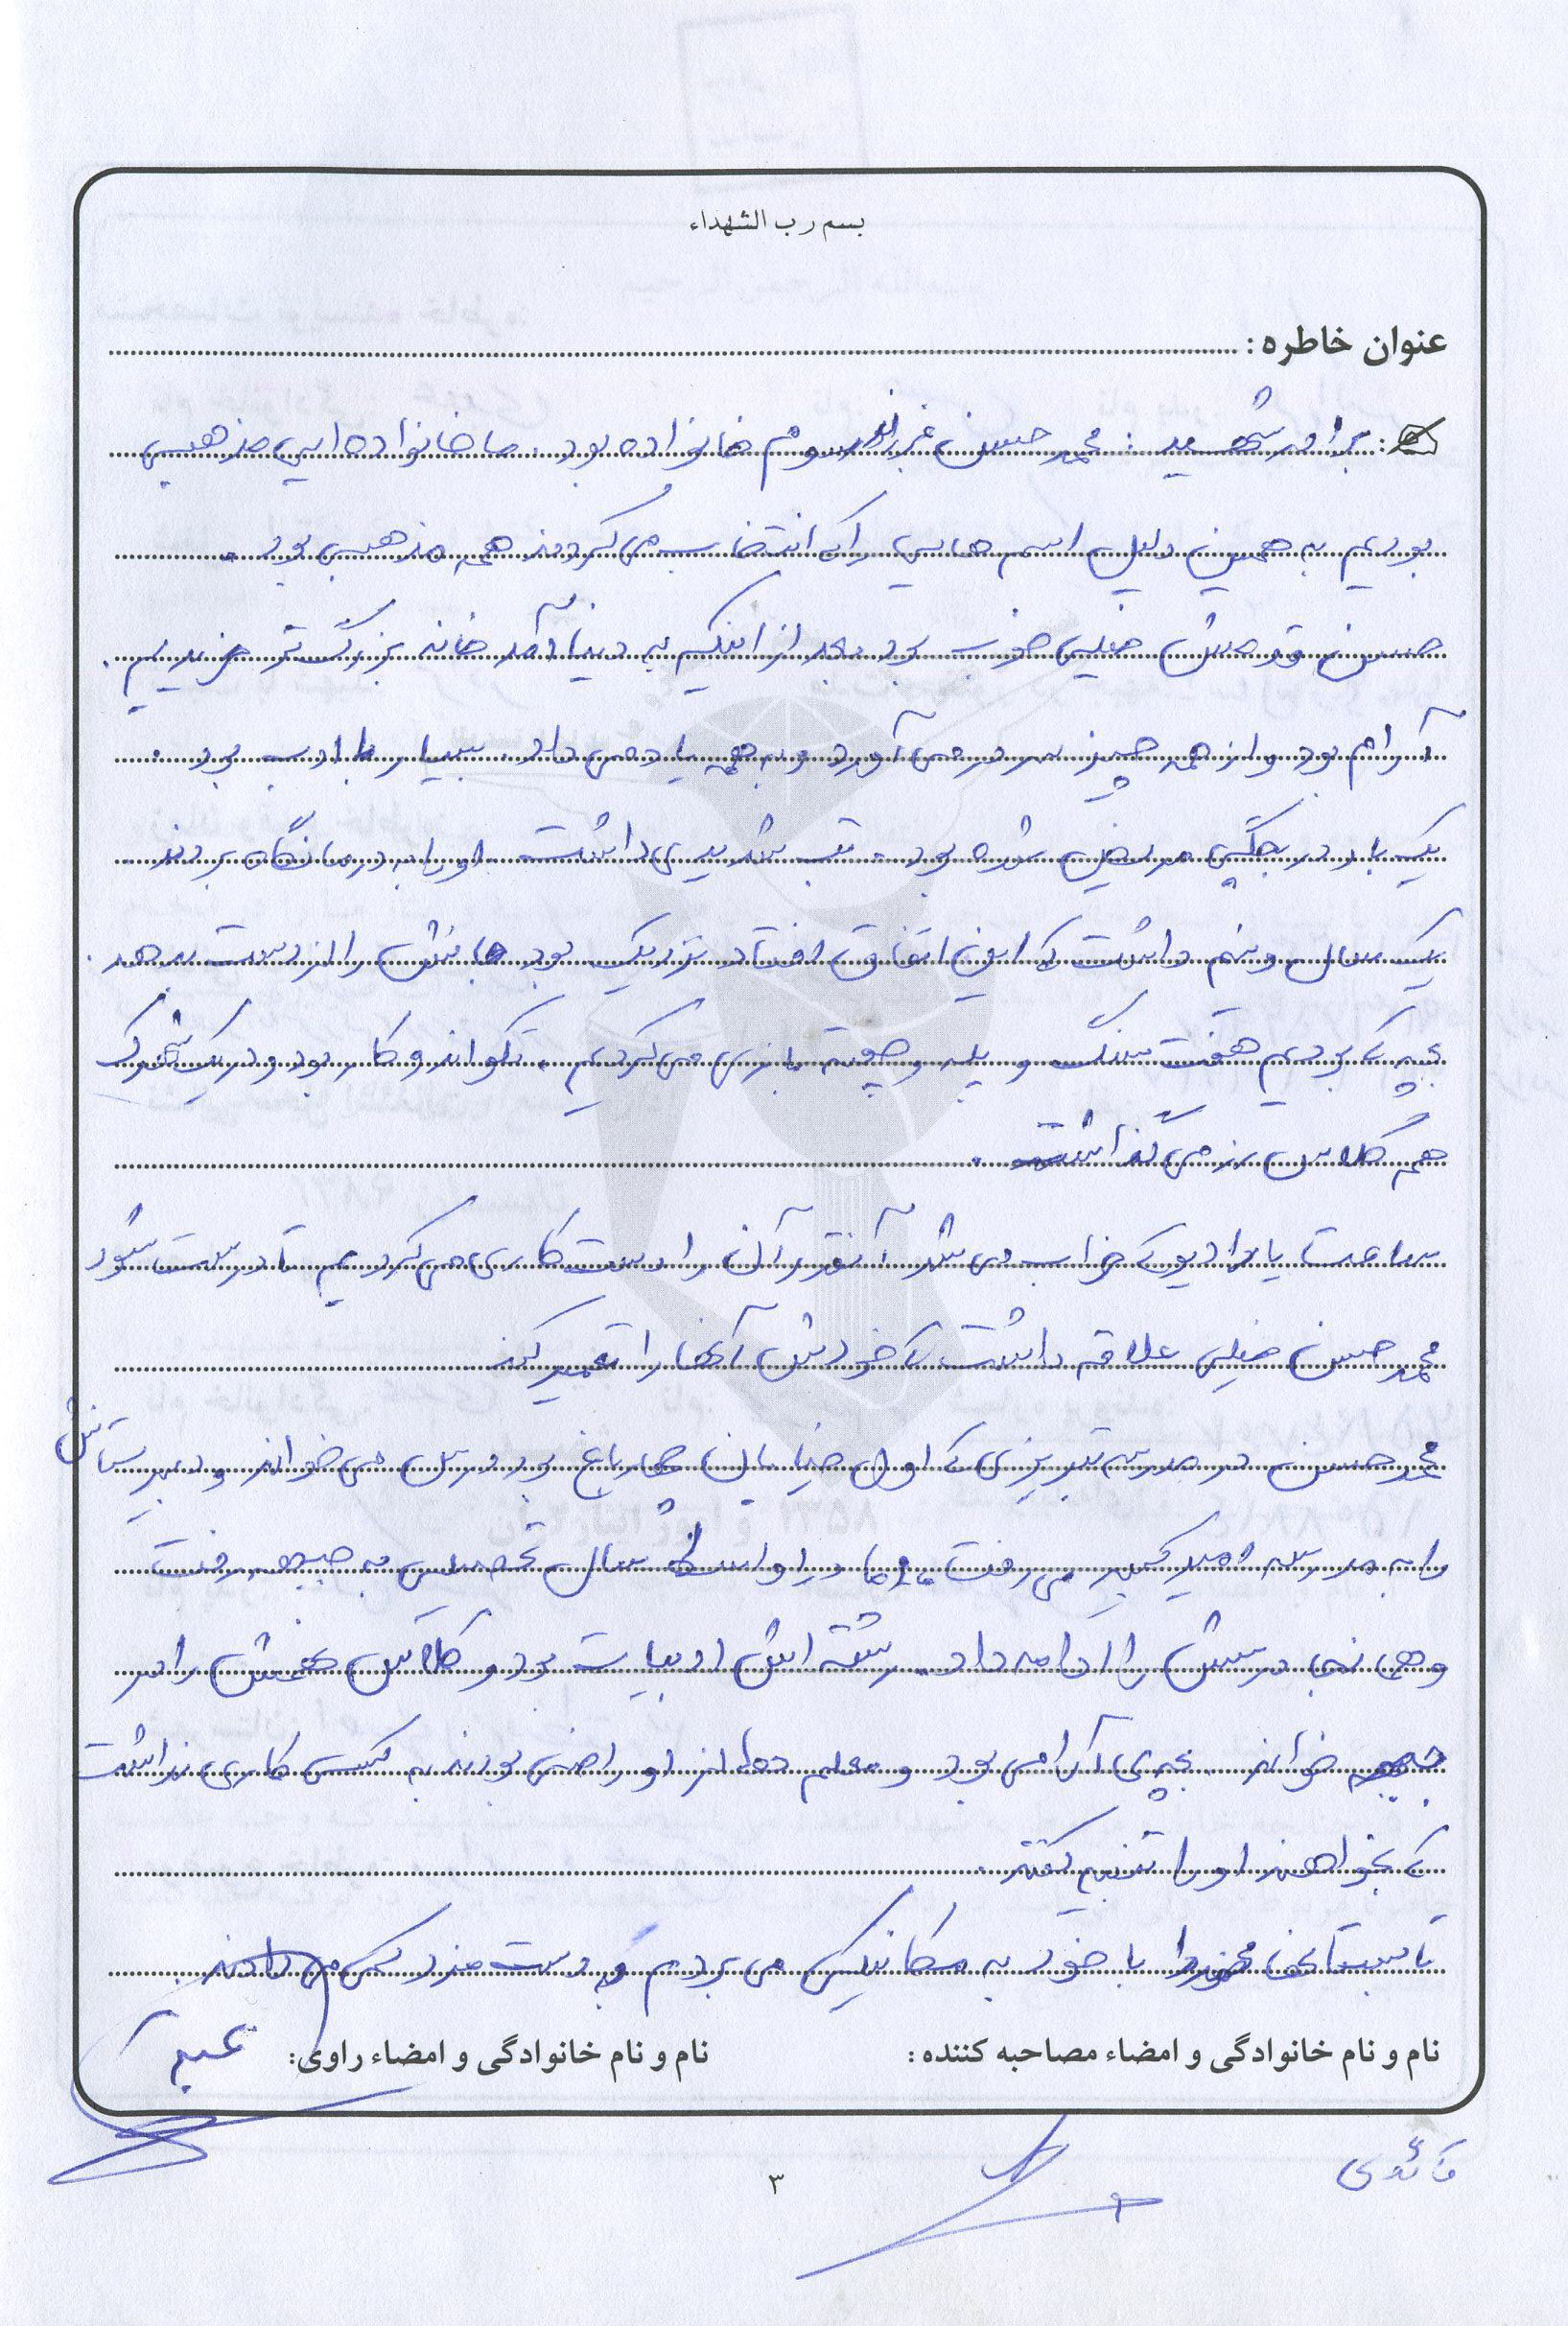 بسم رب الشهداء
عنوان خاطره:
برادر شهید: محمد حسن فرزند سوم خانواده بود. ما خانواده ایی مذهبی
بودیم به همین دلیل اسم هایی را که انتخاب می کردند همه مذهبی بود.
حسن قدمش خیلی خوب بود بعد از اینکه به دنیا آمد خانه بزرگ تر خریدیم.
آرام بود و از همه چیز سر در می آورد و به همه یاد می داد. بسیار با ادب بود.
یک بار در بچگی مریض شده بود. تب شدیدی داشت او را به درمانگاه بردند
یک سال و نیم داشت که این اتفاق افتاد نزدیک بود جانش را از دست بدهد.
بچه که بودیم هفت سنگ و پله و چفته بازی می کردیم. تکواندو کار بود و در یک شهرک
هم کلاس رزمی گذاشت.
ساعت یا رادیو که خراب می شد آنقدر آن را دست کاری می کردیم تا درست شود
محمد حسن خیلی علاقه داشت که خودش آنها را تعمیر کند
محمد حسن در مدرسه تبریزی که اول خیابان چهارباغ بود درس می خواند و دبیرستانش
را به مدرسه امیرکبیر می رفت اما در اواسط سال تحصیلی به جبهه رفت
و همانجا درسش را ادامه داد. رشته اش ادبیات بود و کلاس نهمش را در
جبهه خواند. بچه ی آرامی بود و معلم ها از او راضی بودند به کسی کاری نداشت
که بخواهند او را تنبیه کنند.
تابستان ها را با خود به مکانیکی می بردم و دست مزد کمی می دادند.
نام و نام خانوادگی و امضاء مصاحبه کننده: نام و نام خانوادگی و امضاء راوی:
قائدی
۳